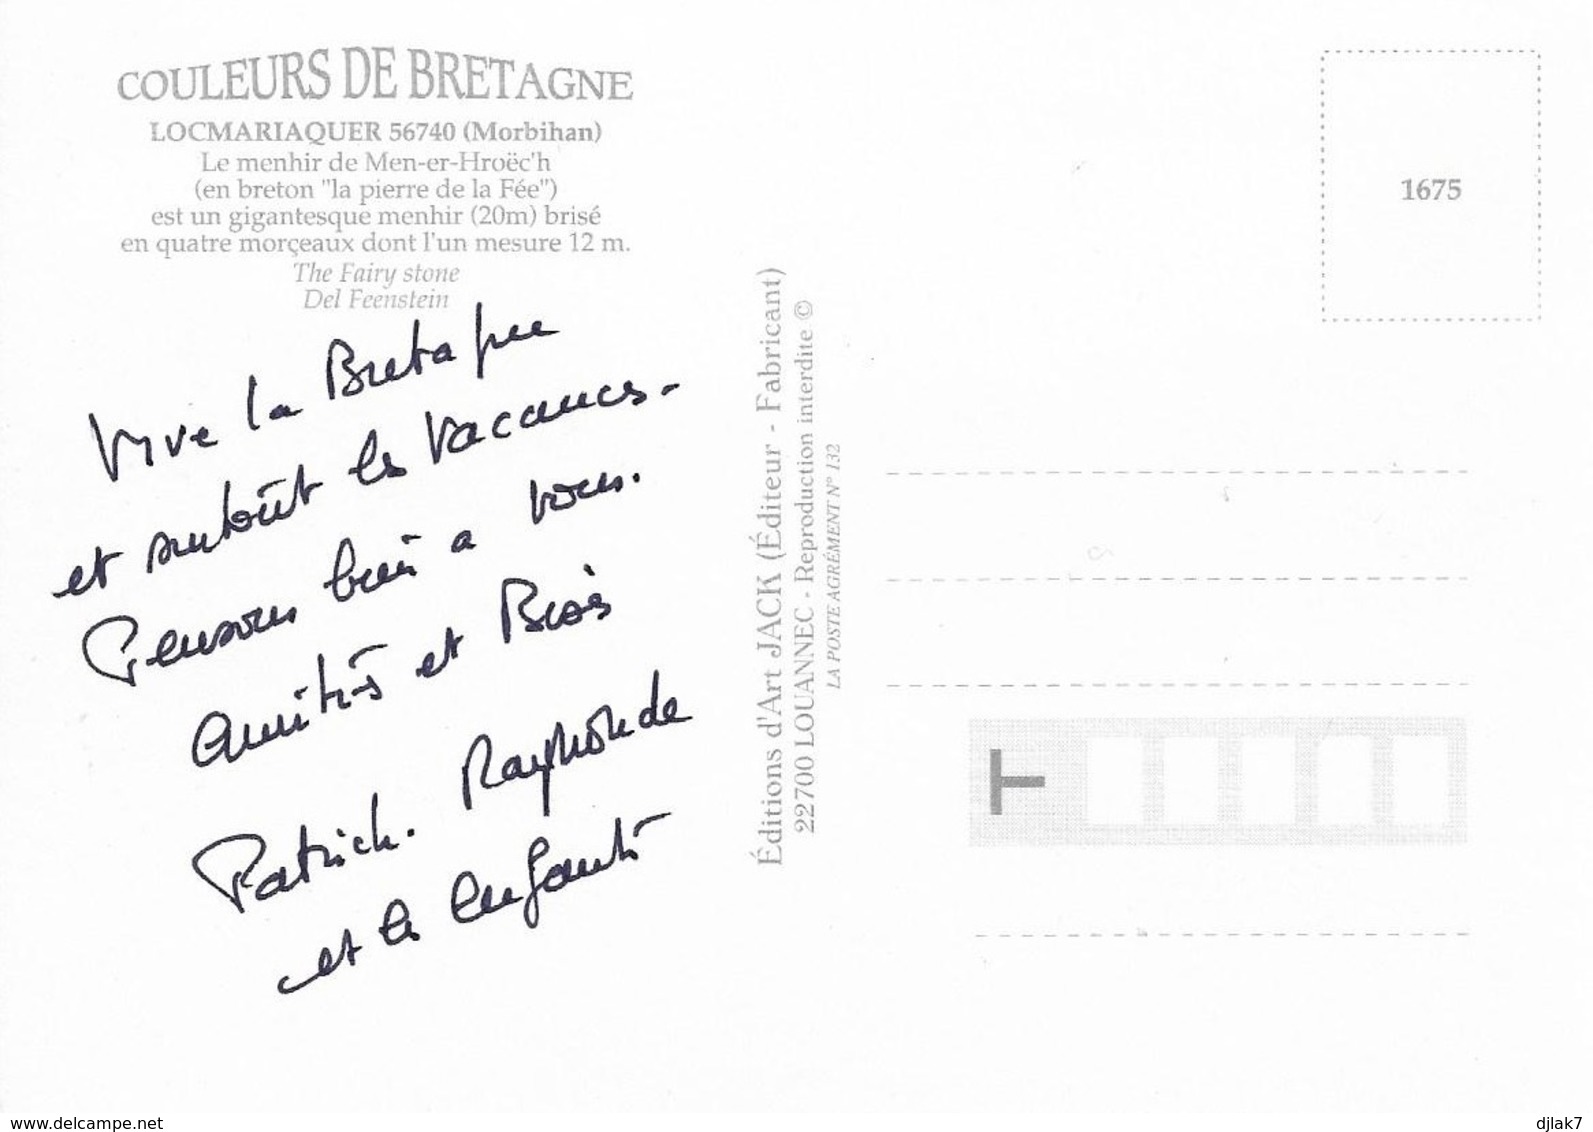 COULEURS DE BRETAGNE
LOCMARIAQUER 56740 (Morbihan)
Le menhir de Men-er-Hroëc'h
(en breton "la pierre de la Fée")
est un gigantesque menhir (20m) brisé
en quatre morçeaux dont l'un mesure 12 m.
The Fairy stone
Del Feenstein
Vive la Bretagne
et surtout les vacances.
Pensons bien a vous.
Amitiés et Bises
Patrick. Raymonde
et les enfants
Éditions d'Art JACK (Éditeur - Fabricant)
22700 LOUANNEC - Reproduction interdite ©
LA POSTE AGRÉMENT N° 132
1675
T
www.delcampe.net
djlak7